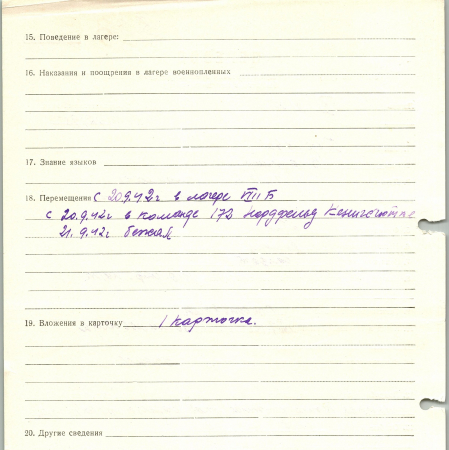 15. Поведение в лагере:
16. Наказания и поощрения в лагере военнопленных
17. Знание языков
18. Перемещения с 20.9.42г в лагере
с 20.9.42г в команде 173 Нордфельд Кенигсгютте
21.9.42г бежал
19. Вложения в карточку 1 карточка.
20. Другие сведения